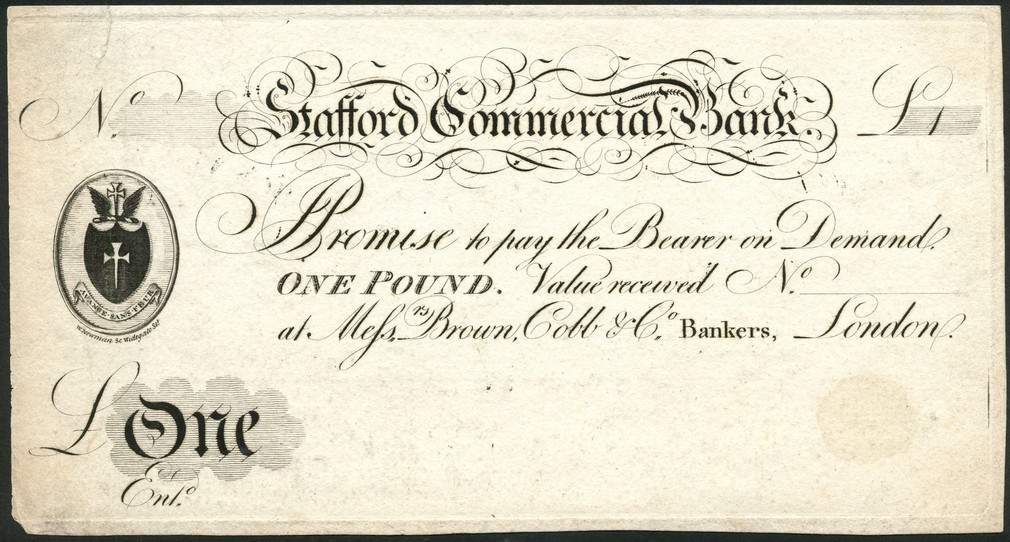 No. Stafford Commercial Bank. £1
I Promise to pay the Bearer on Demand.
ONE POUND. Value received No.
at Messrs. Brown, Cobb & Co. Bankers, London.
AVANCE·SANS·PEUR
Newman Sc Widegate Str
£ One
Entd.